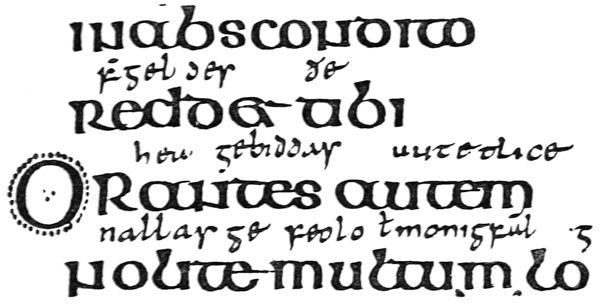 inabscondito
f̄geldes ðe
reddet tibi
gebiddas uutedlice
Orantes autem
nallas ge feolo ł monigful g
nolite multum lo